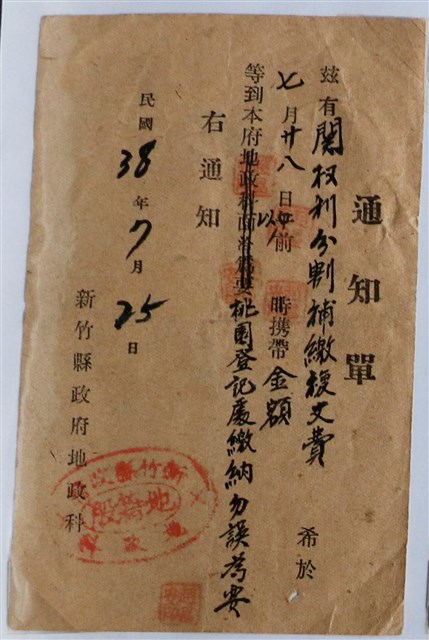 通知單
茲有関权利分割補繳複丈費 希於
七月廿八日以前 時携帶金額
等到本府地政科面洽為要桃園登記處繳納勿誤為安
右通知
民國38年7月25日
新竹縣政府地政科
地籍股